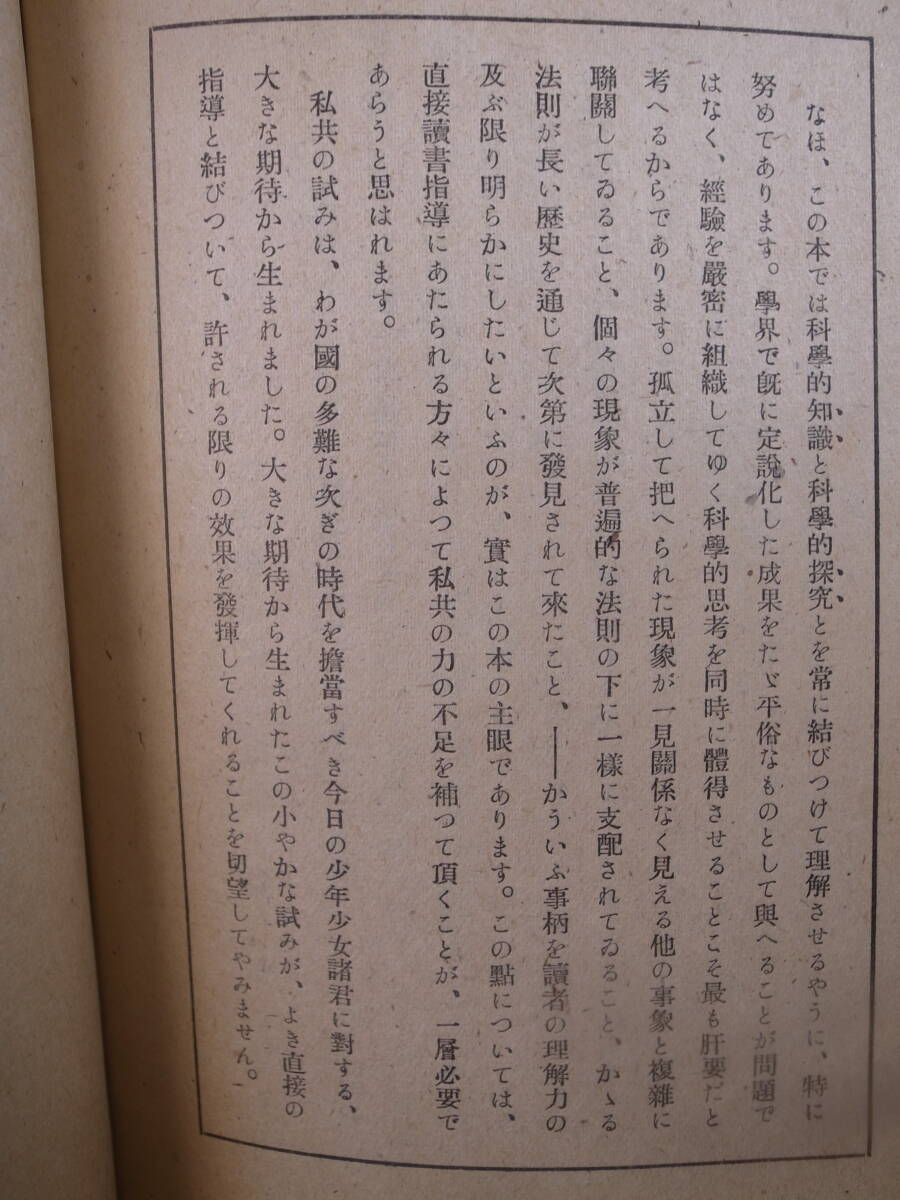 なほ、この本では科學的知識と科學的探究とを常に結びつけて理解させるやうに、特に
努めてあります。學界で既に定說化した成果をたゞ平俗なものとして與へることが問題で
はなく、經驗を嚴密に組織してゆく科學的思考を同時に體得させることこそ最も肝要だと
考へるからであります。孤立して把へられた現象が一見關係なく見える他の事象と複雜に
聯關してゐること、個々の現象が普遍的な法則の下に一樣に支配されてゐること、かゝる
法則が長い歷史を通じて次第に發見されて來たこと、――かういふ事柄を讀者の理解力の
及ぶ限り明らかにしたいといふのが、實はこの本の主眼であります。この點については、
直接讀書指導にあたられる方々によつて私共の力の不足を補つて頂くことが、一層必要で
あらうと思はれます。
私共の試みは、わが國の多難な次ぎの時代を擔當すべき今日の少年少女諸君に對する、
大きな期待から生まれました。大きな期待から生まれたこの小やかな試みが、よき直接の
指導と結びついて、許される限りの效果を發揮してくれることを切望してやみません。